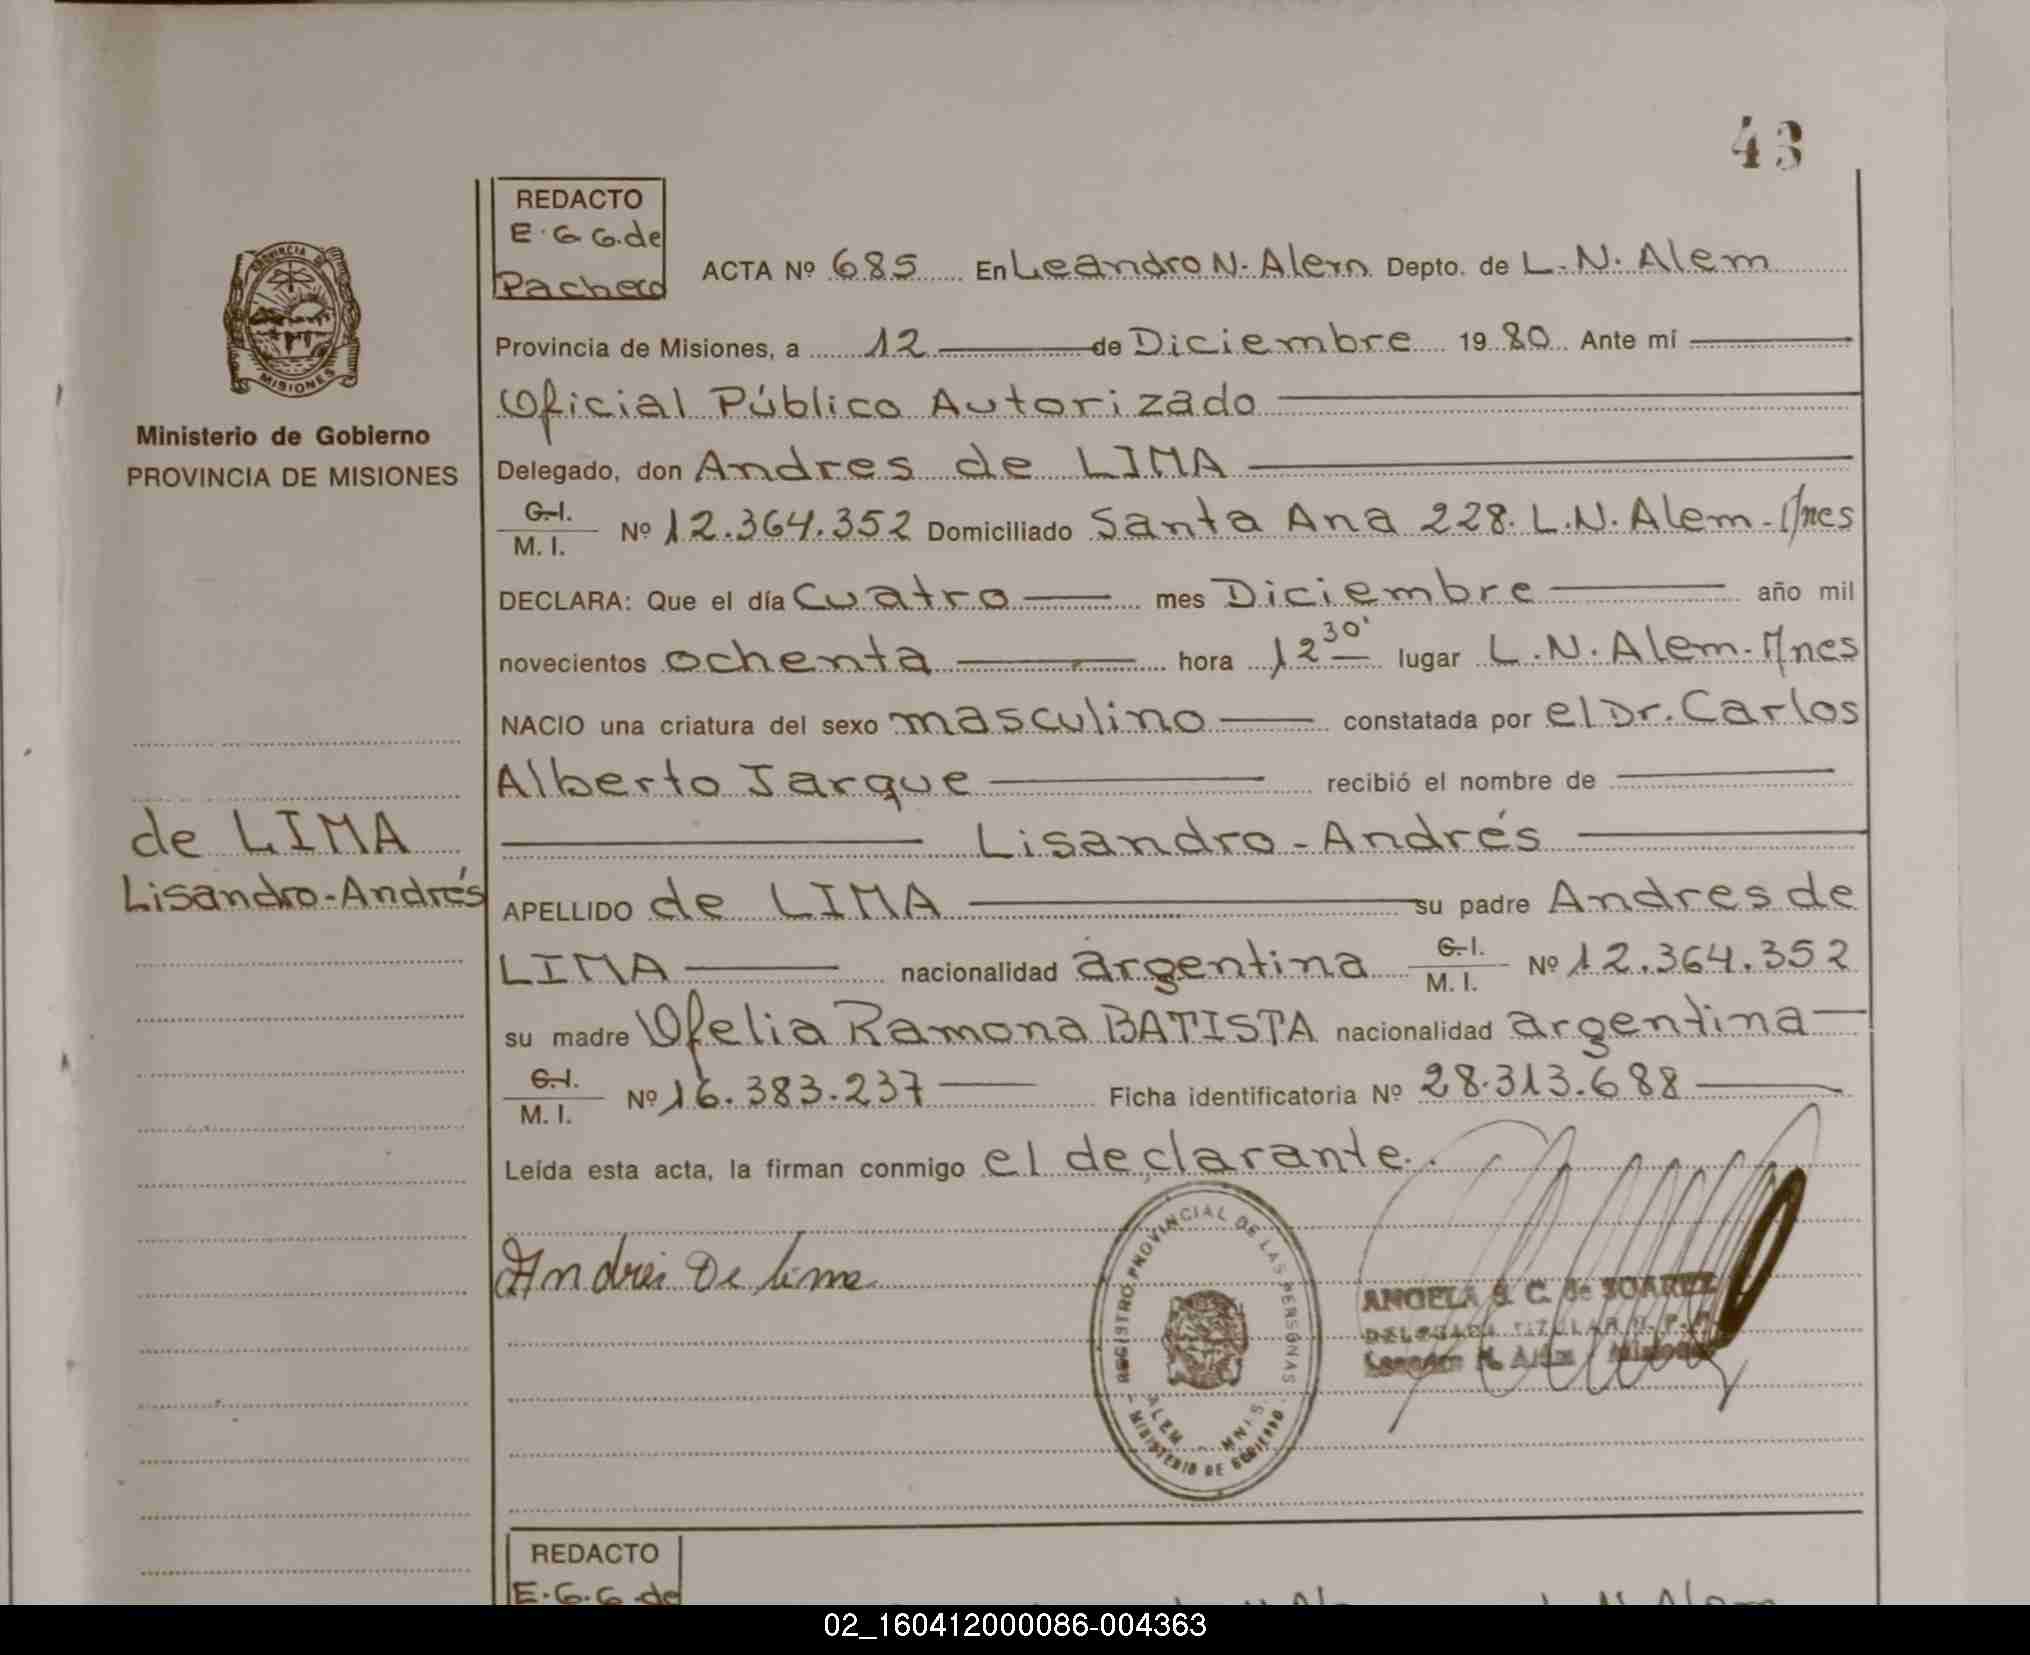 43
REDACTO
E. G G. de
Pacheco
ACTA Nº 685 En Leandro N. Alem Depto. de L. N. Alem
PROVINCIA DE
MISIONES
Provincia de Misiones, a 12 de Diciembre 1980 Ante mí
Oficial Público Autorizado
Ministerio de Gobierno
PROVINCIA DE MISIONES
Delegado, don Andres de LIMA
C.I.
M. I. Nº 12.364.352 Domiciliado Santa Ana 228. L.N. Alem-Mnes
DECLARA: Que el día cuatro mes Diciembre año mil
novecientos ochenta hora 12 30' lugar L.N. Alem-Mnes
NACIO una criatura del sexo masculino constatada por el Dr. Carlos
Alberto Jarque recibió el nombre de
Lisandro-Andrés
de LIMA
Lisandro-Andrés
APELLIDO de LIMA su padre Andres de
LIMA nacionalidad argentina C.I.
M. I. Nº 12.364.352
su madre Ofelia Ramona BATISTA nacionalidad argentina
C.I.
M. I. Nº 16.383.237 Ficha identificatoria Nº 28.313.688
Leída esta acta, la firman conmigo el declarante.
Andrés De Lima
REGISTRO PROVINCIAL DE LAS PERSONAS
ALEM - MNES.
MINISTERIO DE GOBIERNO
ANGELA C. de SOAREZ
DELEGADA TITULAR R. P. P.
Leandro N. Alem - Misiones
REDACTO
E. G. G. de
N. Alem
02_160412000086-004363